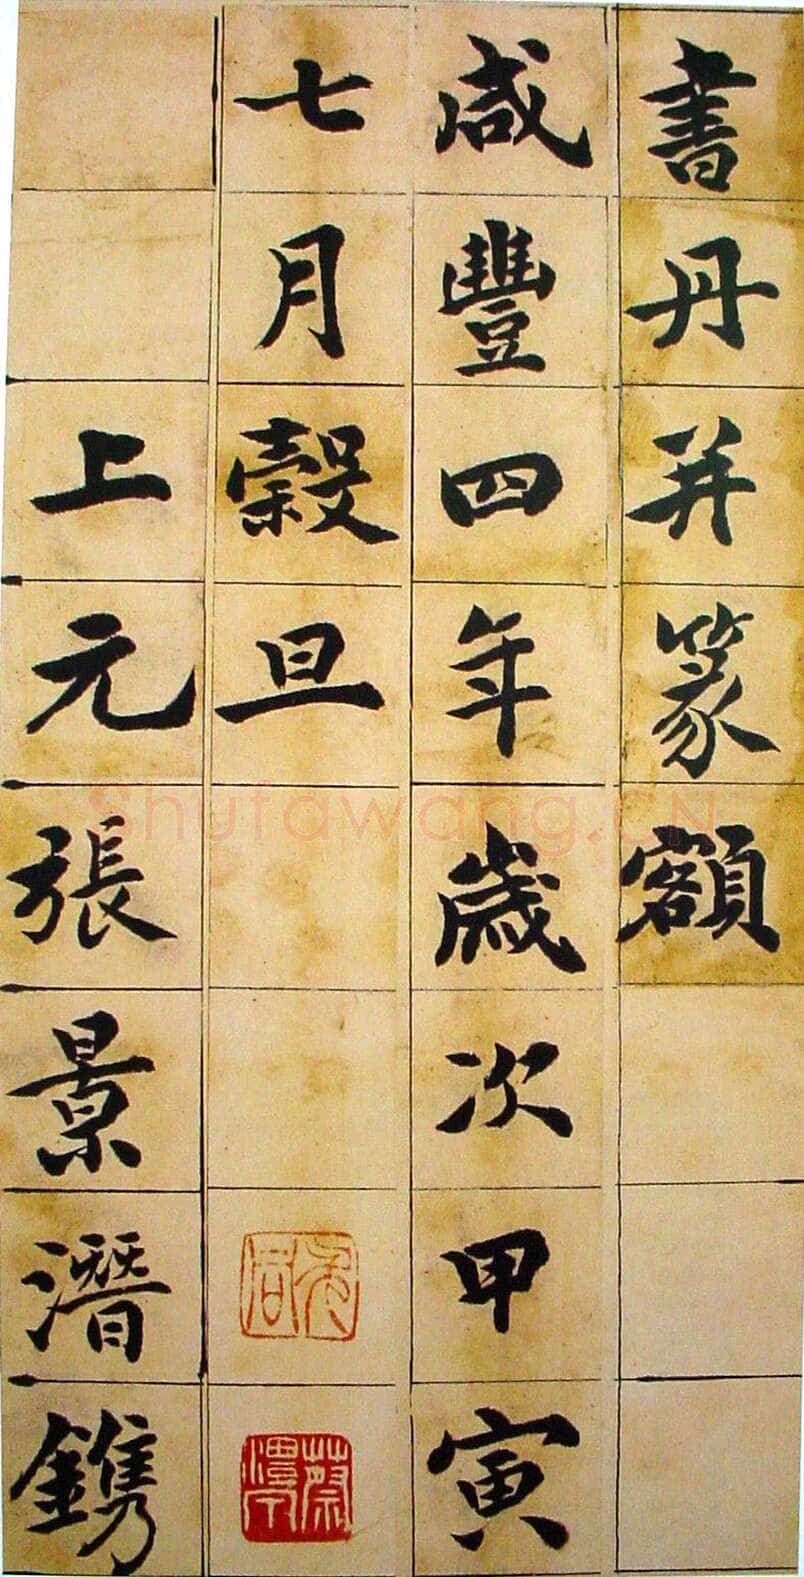 書丹并篆額
咸豐四年歲次甲寅
七月穀旦
上元張景潛鐫
Shufawang.CN